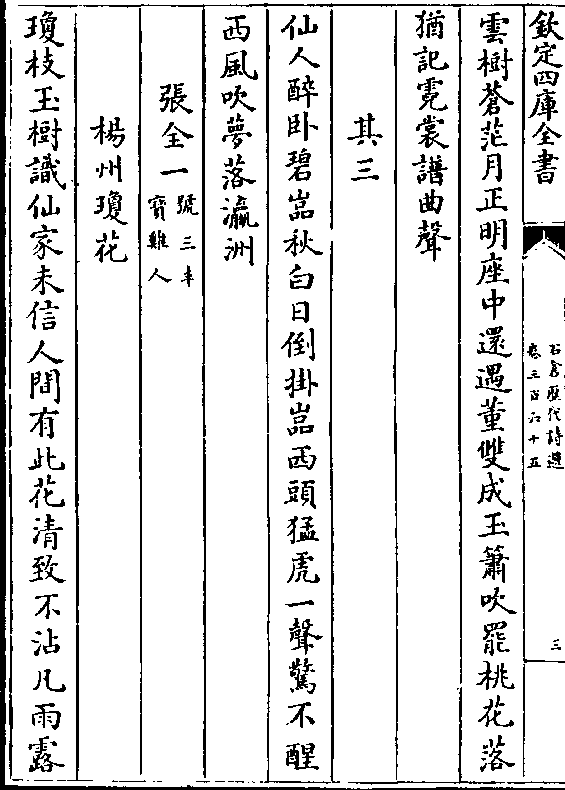 欽定四庫全書
石倉歷代詩選
卷三百六十五
三
雲樹蒼茫月正明座中還遇董雙成玉簫吹罷桃花落
猶記霓裳譜曲聲
其三
仙人醉卧碧嵓秋白日倒掛嵓西頭猛虎一聲驚不醒
西風吹夢落瀛洲
張全一號三丰
寶雞人
楊州瓊花
瓊枝玉樹識仙家未信人間有此花清致不沾凡雨露